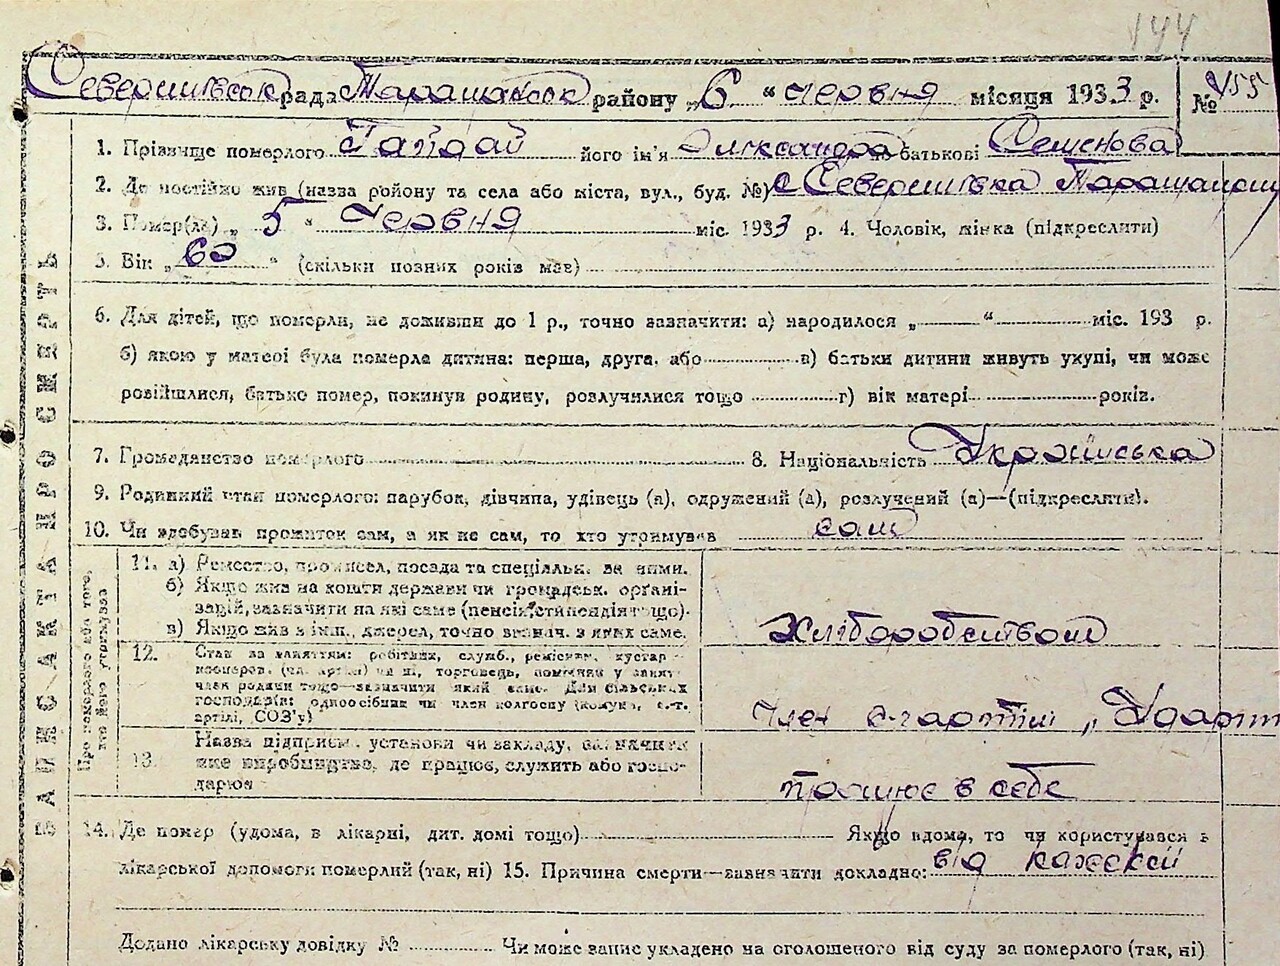 144
Северинівськ рада Таращанськ району „6“ червня місяця 1933 р. № 455
1. Прізвище померлого Гайдай його ім'я Олександра по батькові Семенова
2. Де постійно жив (назва району та села або міста, вул., буд. №) с Северинівка
3. Помер(ла) „5“ червня міс. 1933 р. 4. Чоловік, жінка (підкреслити)
5. Вік „60“ (скільки повних років мав)
6. Для дітей, що померли, не доживши до 1 р., точно зазначити: а) народилося „ “ міс. 193 р.
б) якою у матері була померла дитина: перша, друга, або в) батьки дитини живуть укупі, чи може
розійшлися, батько помер, покинув родину, розлучилися тощо г) вік матері років.
7. Громадянство померлого 8. Національність Українська
9. Родинний стан померлого: парубок, дівчина, удівець (а), одружений (а), розлучений (а)—(підкреслити).
10. Чи здобував прожиток сам, а як не сам, то хто утримував сам
ЗАПИС АКТА ПРО СМЕРТЬ
Про померлого або того, хто його утримував
11. а) Ремество, промисел, посада та спеціяльн. за ними.
б) Якщо жив на кошти держави чи громадськ. орґані-
зацій, зазначити на які саме (пенсія, стипендія тощо).
в) Якщо жив з інш. джерел, точно зазнач. з яких саме.
Хліборобством
12. Стан за заняттям: робітник, служб., ремісник, кустар
кооперов. (чл. артілі) чи ні, торговець, помічник у занят.
член родини тощо—зазначити який саме. Для сільських
господарів: одноосібник чи член колгоспу (комуни, с.-г.
артілі, СОЗ'у)
член с-г артілі „
13. Назва підприєм. установи чи закладу, зазначити
яке виробництво, де працює, служить або госпо-
дарює
працює в себе
14. Де помер (удома, в лікарні, дит. домі тощо) Якщо вдома, то чи користувався з
лікарської допомоги померлий (так, ні) 15. Причина смерти—зазначити докладно: від
Додано лікарську довідку № Чи може запис укладено на оголошеного від суду за померлого (так, ні)